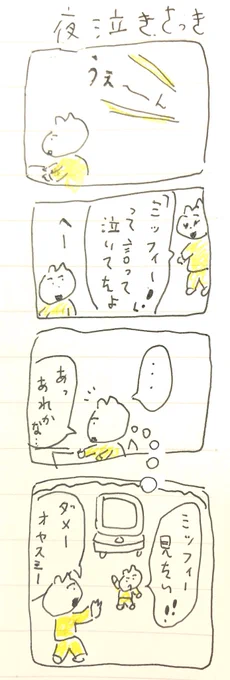 夜泣き、さっき
うぇ〜ん
「ミッフィー!!」
って言って
泣いてたよ
へー
・・・
あっ
あれかな…
ミッフィー
見たい!!
ダメー
オヤスミー